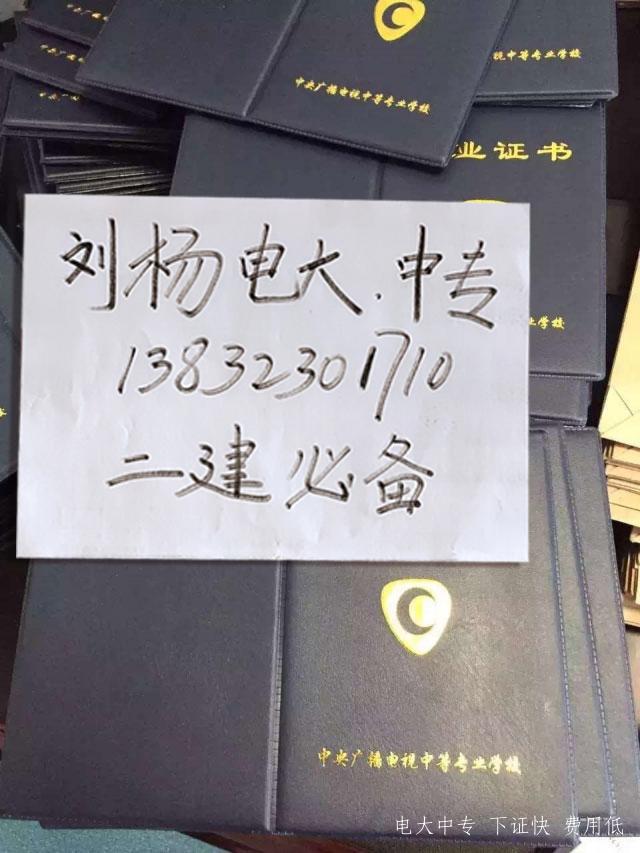 中央广播电视中等专业学校
视中等专业学校
业证书
业学校
刘杨电大.中专
13832301710
二建必备
中央广播电视中等专业学校
电大中专 下证快 费用低